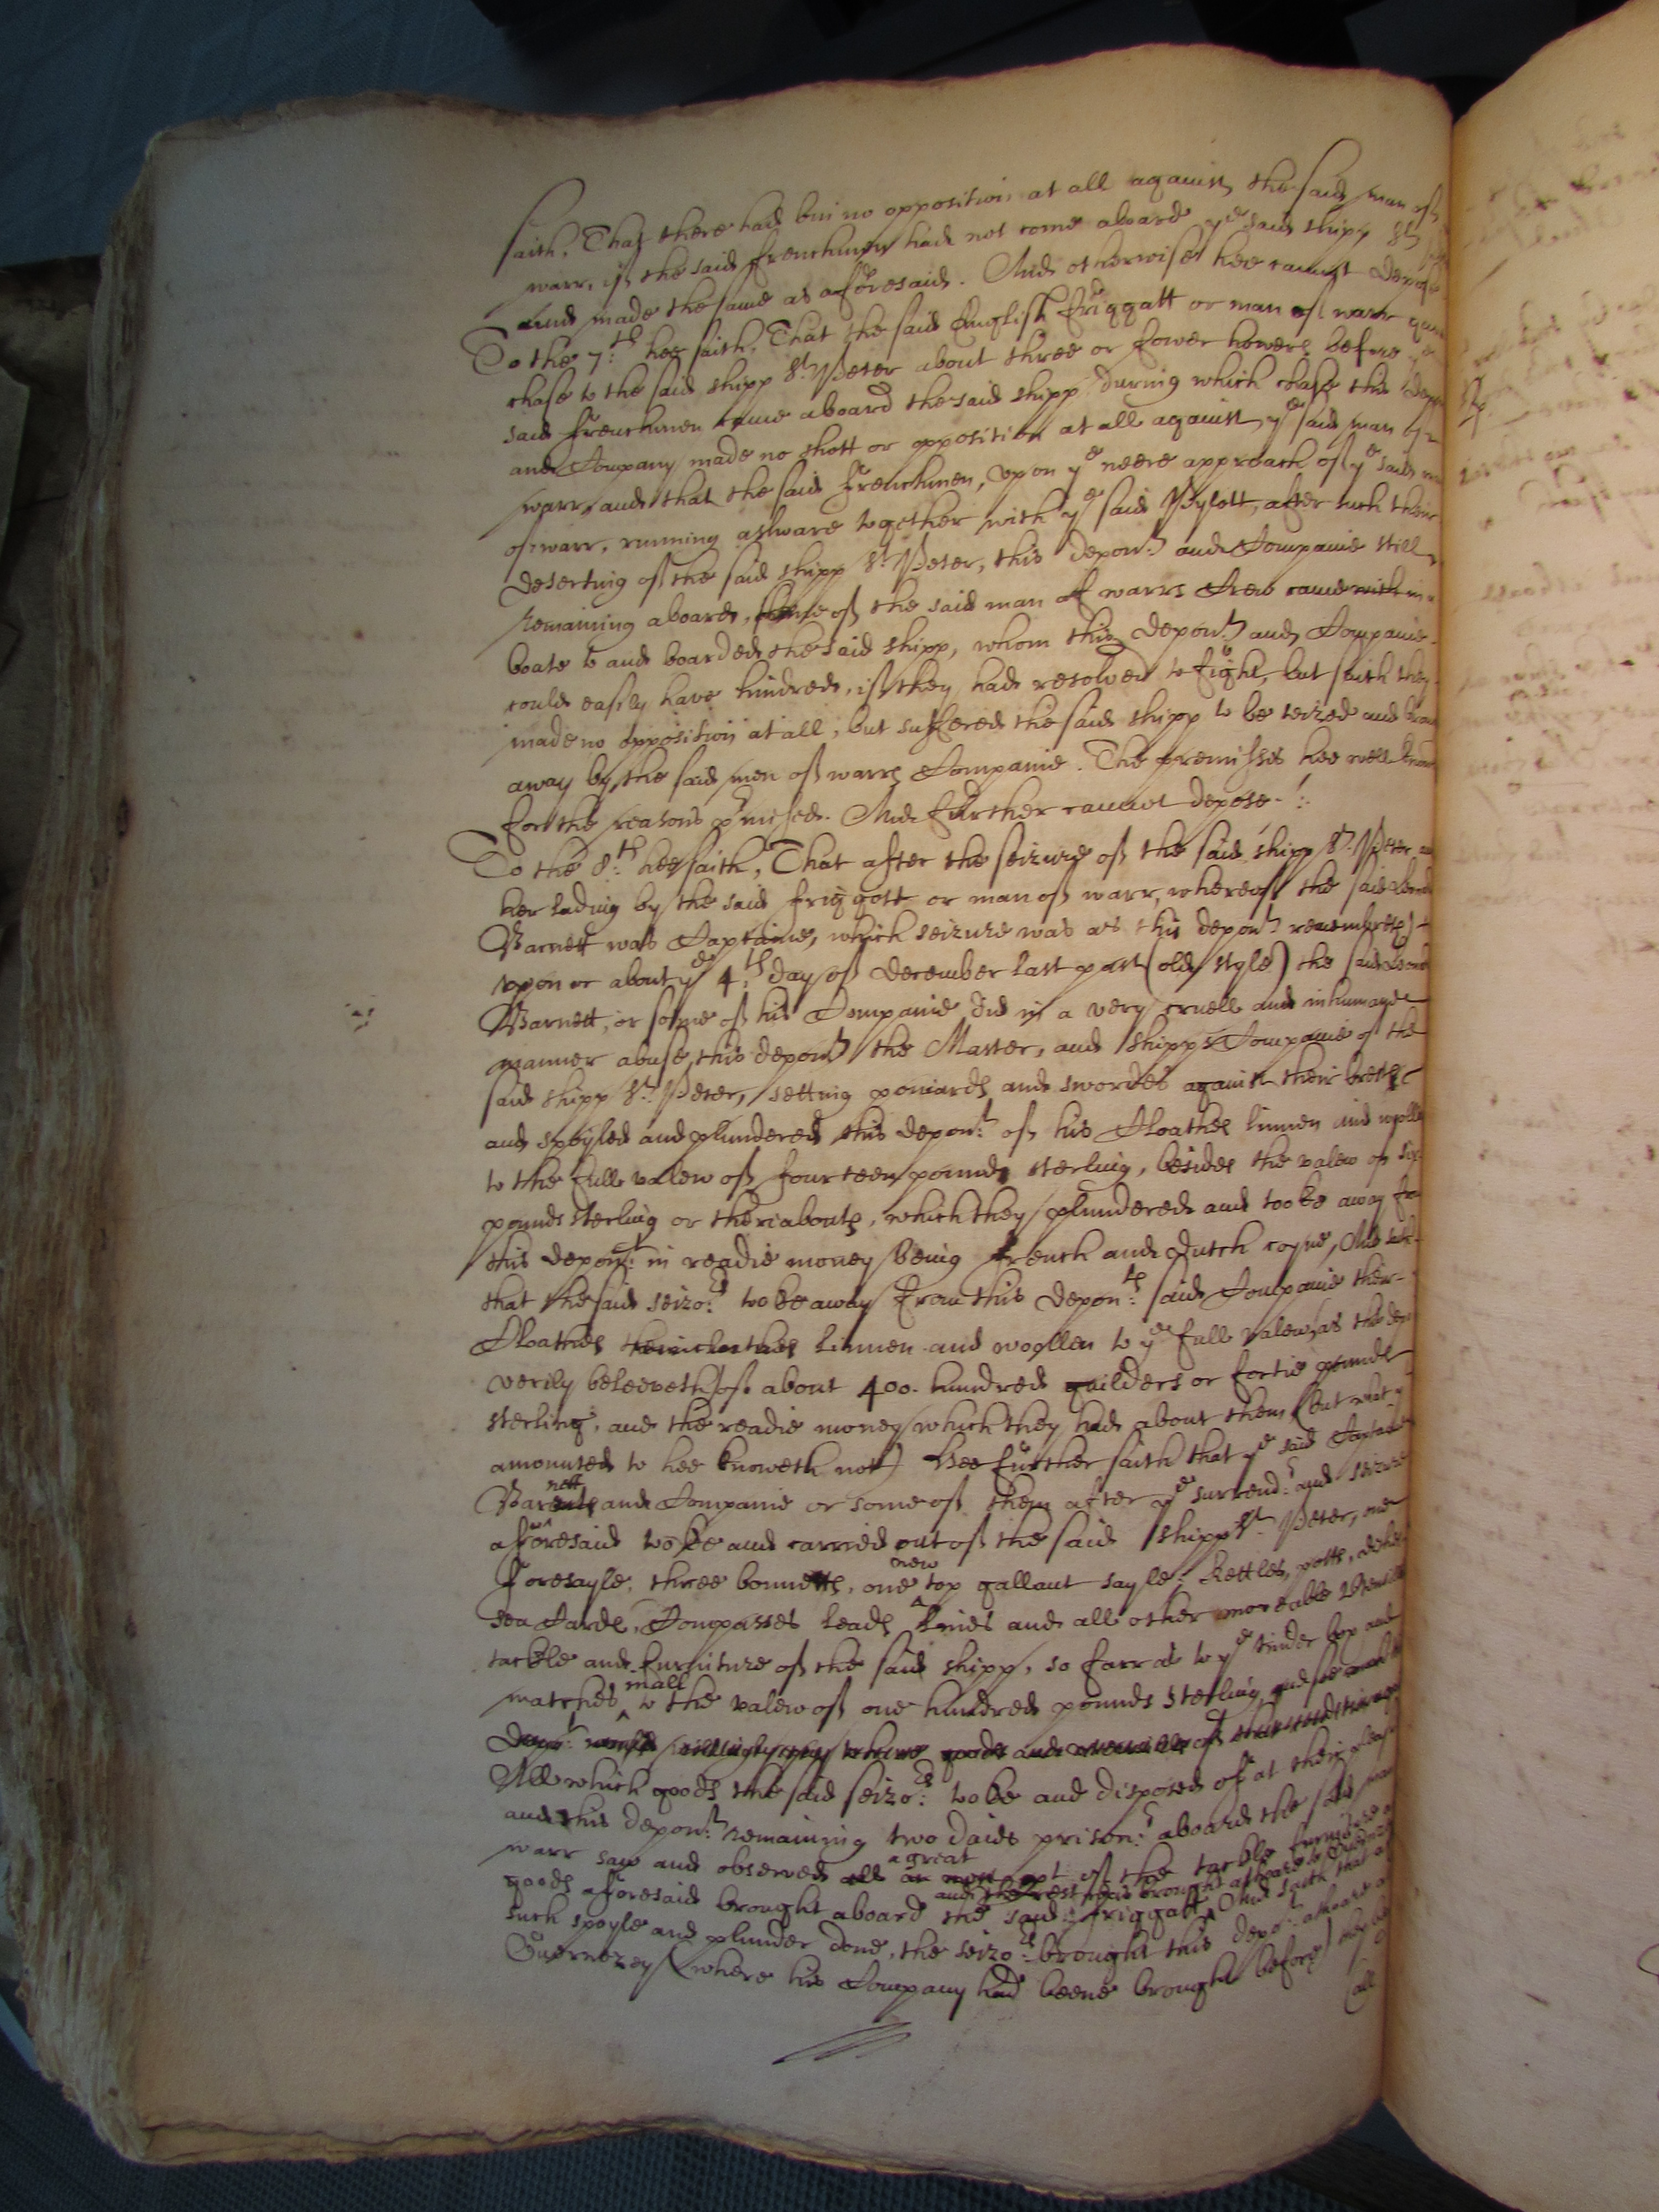 saith, That there had bin no opposition at all against the said man of
warr, if the said ffrenchmen had not come aboard ye said shipp St
and made the same as aforesaid. And otherwise hee cannot depose
To the 7:th hee saith, That the said English friggatt or man of warr gave
chase to the said shipp St: Peter about three or fower howers before ye
said ffrenchmen came aboard the said shipp during which chase this depont
and Company made no shott or opposition at all against ye said man of
warr, and that the said ffrenchmen, upon ye neere approach of ye said man
of warr, running ashoare together with ye said Pylott, after such their
deserting of the said shipp St: Peter, this depont: and Companie still
remaining aboard, some of the said man of warrs Crew came with in a
boate to and boarded the said shipp, whom this depont: and Companie
could easily have hindred, if they had resolved to fight, but saith they
made no opposition at all, but suffered the said shipp to be seized and
away by the said men of warrs Companie. The premisses hee well
for the reasons premised. And further cannot depose.
To the 8:th hee saith, That after the seizure of the said shipp St: Peter
her lading by the said friggott or man of warr, whereof the said
Barnett was Captaine, which seizure was as this depont: remembreth
upon or about ye 4:th day of December last past (old style) the said
Barnett, or some of his Companie did in a very cruell and inhumane
manner abuse this depont the Master, and shipps Companie of the
said shipp St: Peter, setting poniards and swordes against their brests
and spoyled and plundered this depont: of his Cloathes linnen and
to the full valew of fourteen pounds sterling, besides the valew of six
pounds sterling or thereabouts, which they plundered and tooke away
this depont: in readie money being ffrench and Dutch coyne, And
that the said seizors: tooke away from this deponts: said Companie their
Cloathes their clothes linnen and woollen to ye full valew, as this
verily beleeveth, of about 400. hundred guilders or fortie pounds
sterling, and the readie money which they had about them (but what
amounted to hee knoweth not) Hee further saith that ye said Captaine
Barnett and Companie or some of them after ye surrendr: and seizure
aforesaid tooke and carried out of the said shipp St: Peter, one
foresayle, three bonnetts, one new top gallant sayle, kettles, potts,
sea Cards, Compasses leads lines and all other moveable
tackle and furniture of the said shipp, so farr as to ye tinder box and
matches, in all to the valew of one hundred pounds sterling
All which goods the said seizors: tooke and disposed of at their
and this depont: remaining two daies prisonr: aboard the said man
warr saw and observed all a great pt of the tackle furniture
goods aforesaid brought aboard the said friggatt and the rest were brought ashoare And saith that
such spoyle and plunder done, the seizors: brought this depont: ashoare
Guernezey (where his Company had beene brought before)